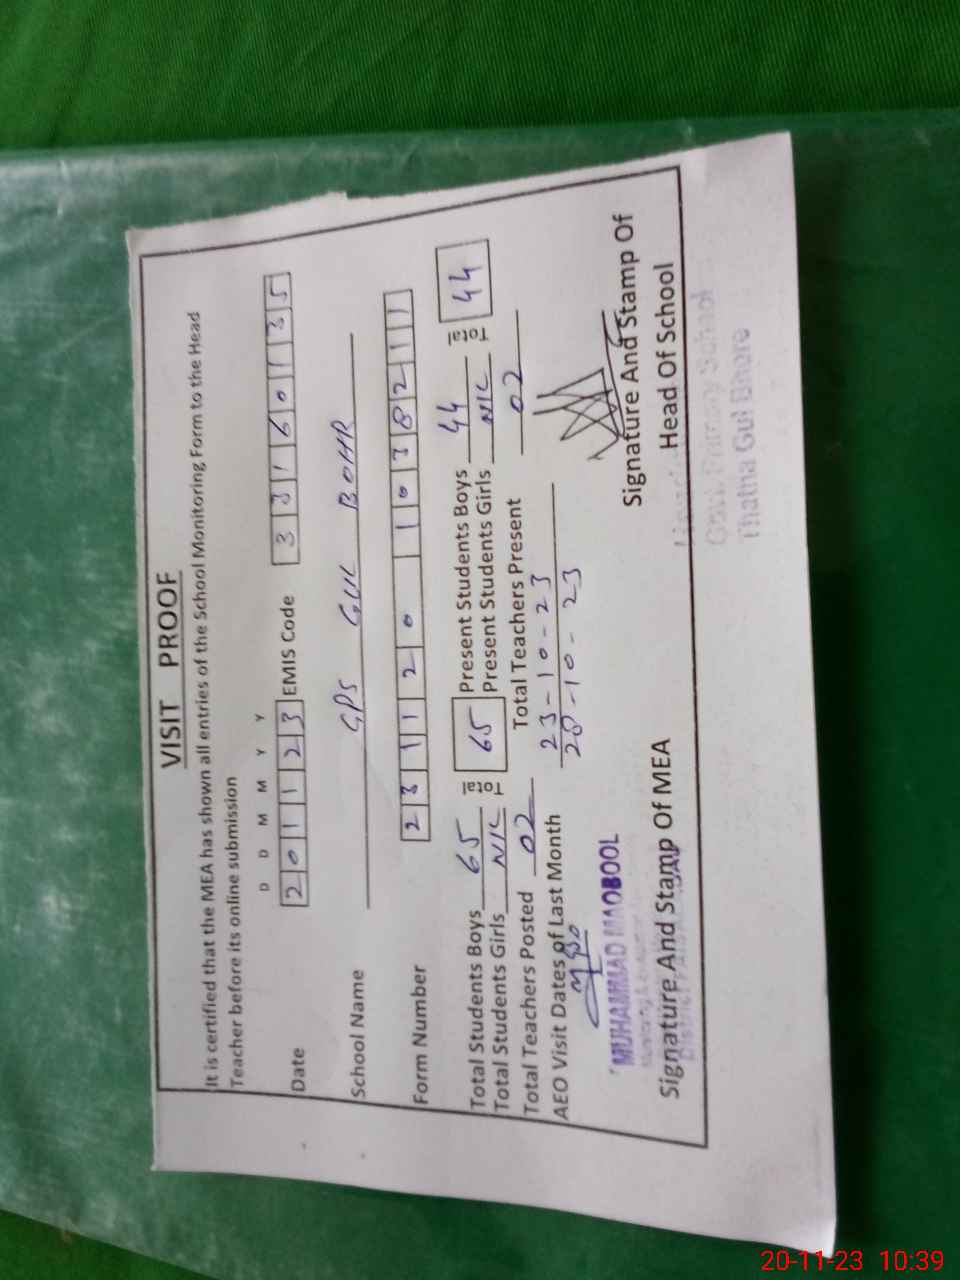 VISIT PROOF
It is certified that the MEA has shown all entries of the School Monitoring Form to the Head
Teacher before its online submission
D D M M Y Y
Date 201123 EMIS Code 33160135
School Name GPS GUL BOHR
Form Number 231120 1038211
Total Students Boys 65 Total 65 Present Students Boys 44 Total 44
Total Students Girls NIL Present Students Girls NIL
Total Teachers Posted 02 Total Teachers Present 02
AEO Visit Dates of Last Month 23-10-23
28-10-23
MUHAMMAD MAQBOOL
Signature And Stamp Of MEA
Signature And Stamp Of
Head Of School
Govt. Primary School
Thatha Gul Bhore
20-11-23 10:39